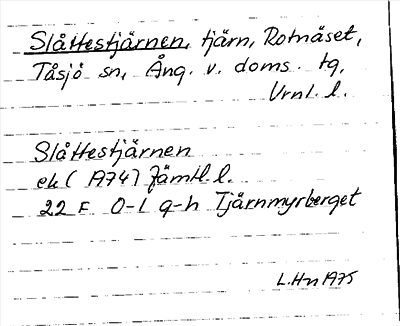 Slåttestjärnen, tjärn, Rotnäset,
Tåsjö sn, Ång. v. doms. tg,
Vrnl. l.
Slåttestjärnen
ek (1974) Jämtl. l.
22 F 0-1 g-h Tjärnmyrberget
L.Hn 1975